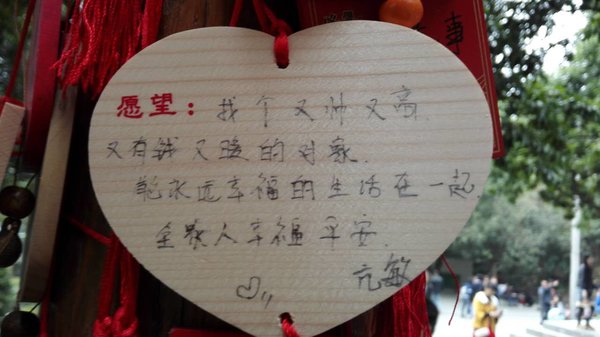 愿望：找个又帅又高
又有钱又暖的对象.
能永远幸福的生活在一起.
全家人幸福平安.
亢敏
事